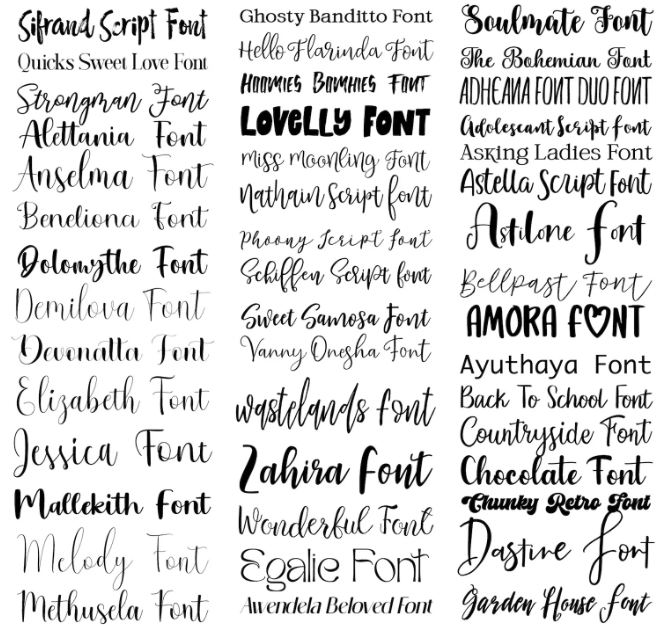 Sifrand Script Font
Quicks Sweet Love Font
Strongman Font
Alettania Font
Anselma Font
Beneliona Font
Dolomythe Font
Demilova Font
Devonatta Font
Elizabeth Font
Jessica Font
Mallekith Font
Melody Font
Methusela Font
Ghosty Banditto Font
Hello Flarinda Font
Hoomies Bomhies Font
Lovelly Font
Miss Moonling Font
Nathain Script font
Phoony Script Font
Schiffen Script font
Sweet Samosa Font
Vanny Onesha Font
wastelands font
Zahira Font
Wonderful Font
Egalie Font
Awendela Beloved Font
Soulmate Font
The Bohemian Font
ADHEANA FONT DUO FONT
Adolescant Script Font
Asking Ladies Font
Astella Script Font
Astilone Font
Bellpast Font
AMORA FONT
Ayuthaya Font
Back To School Font
Countryside Font
Chocolate Font
Chunky Retro Font
Dastine Font
Garden House Font